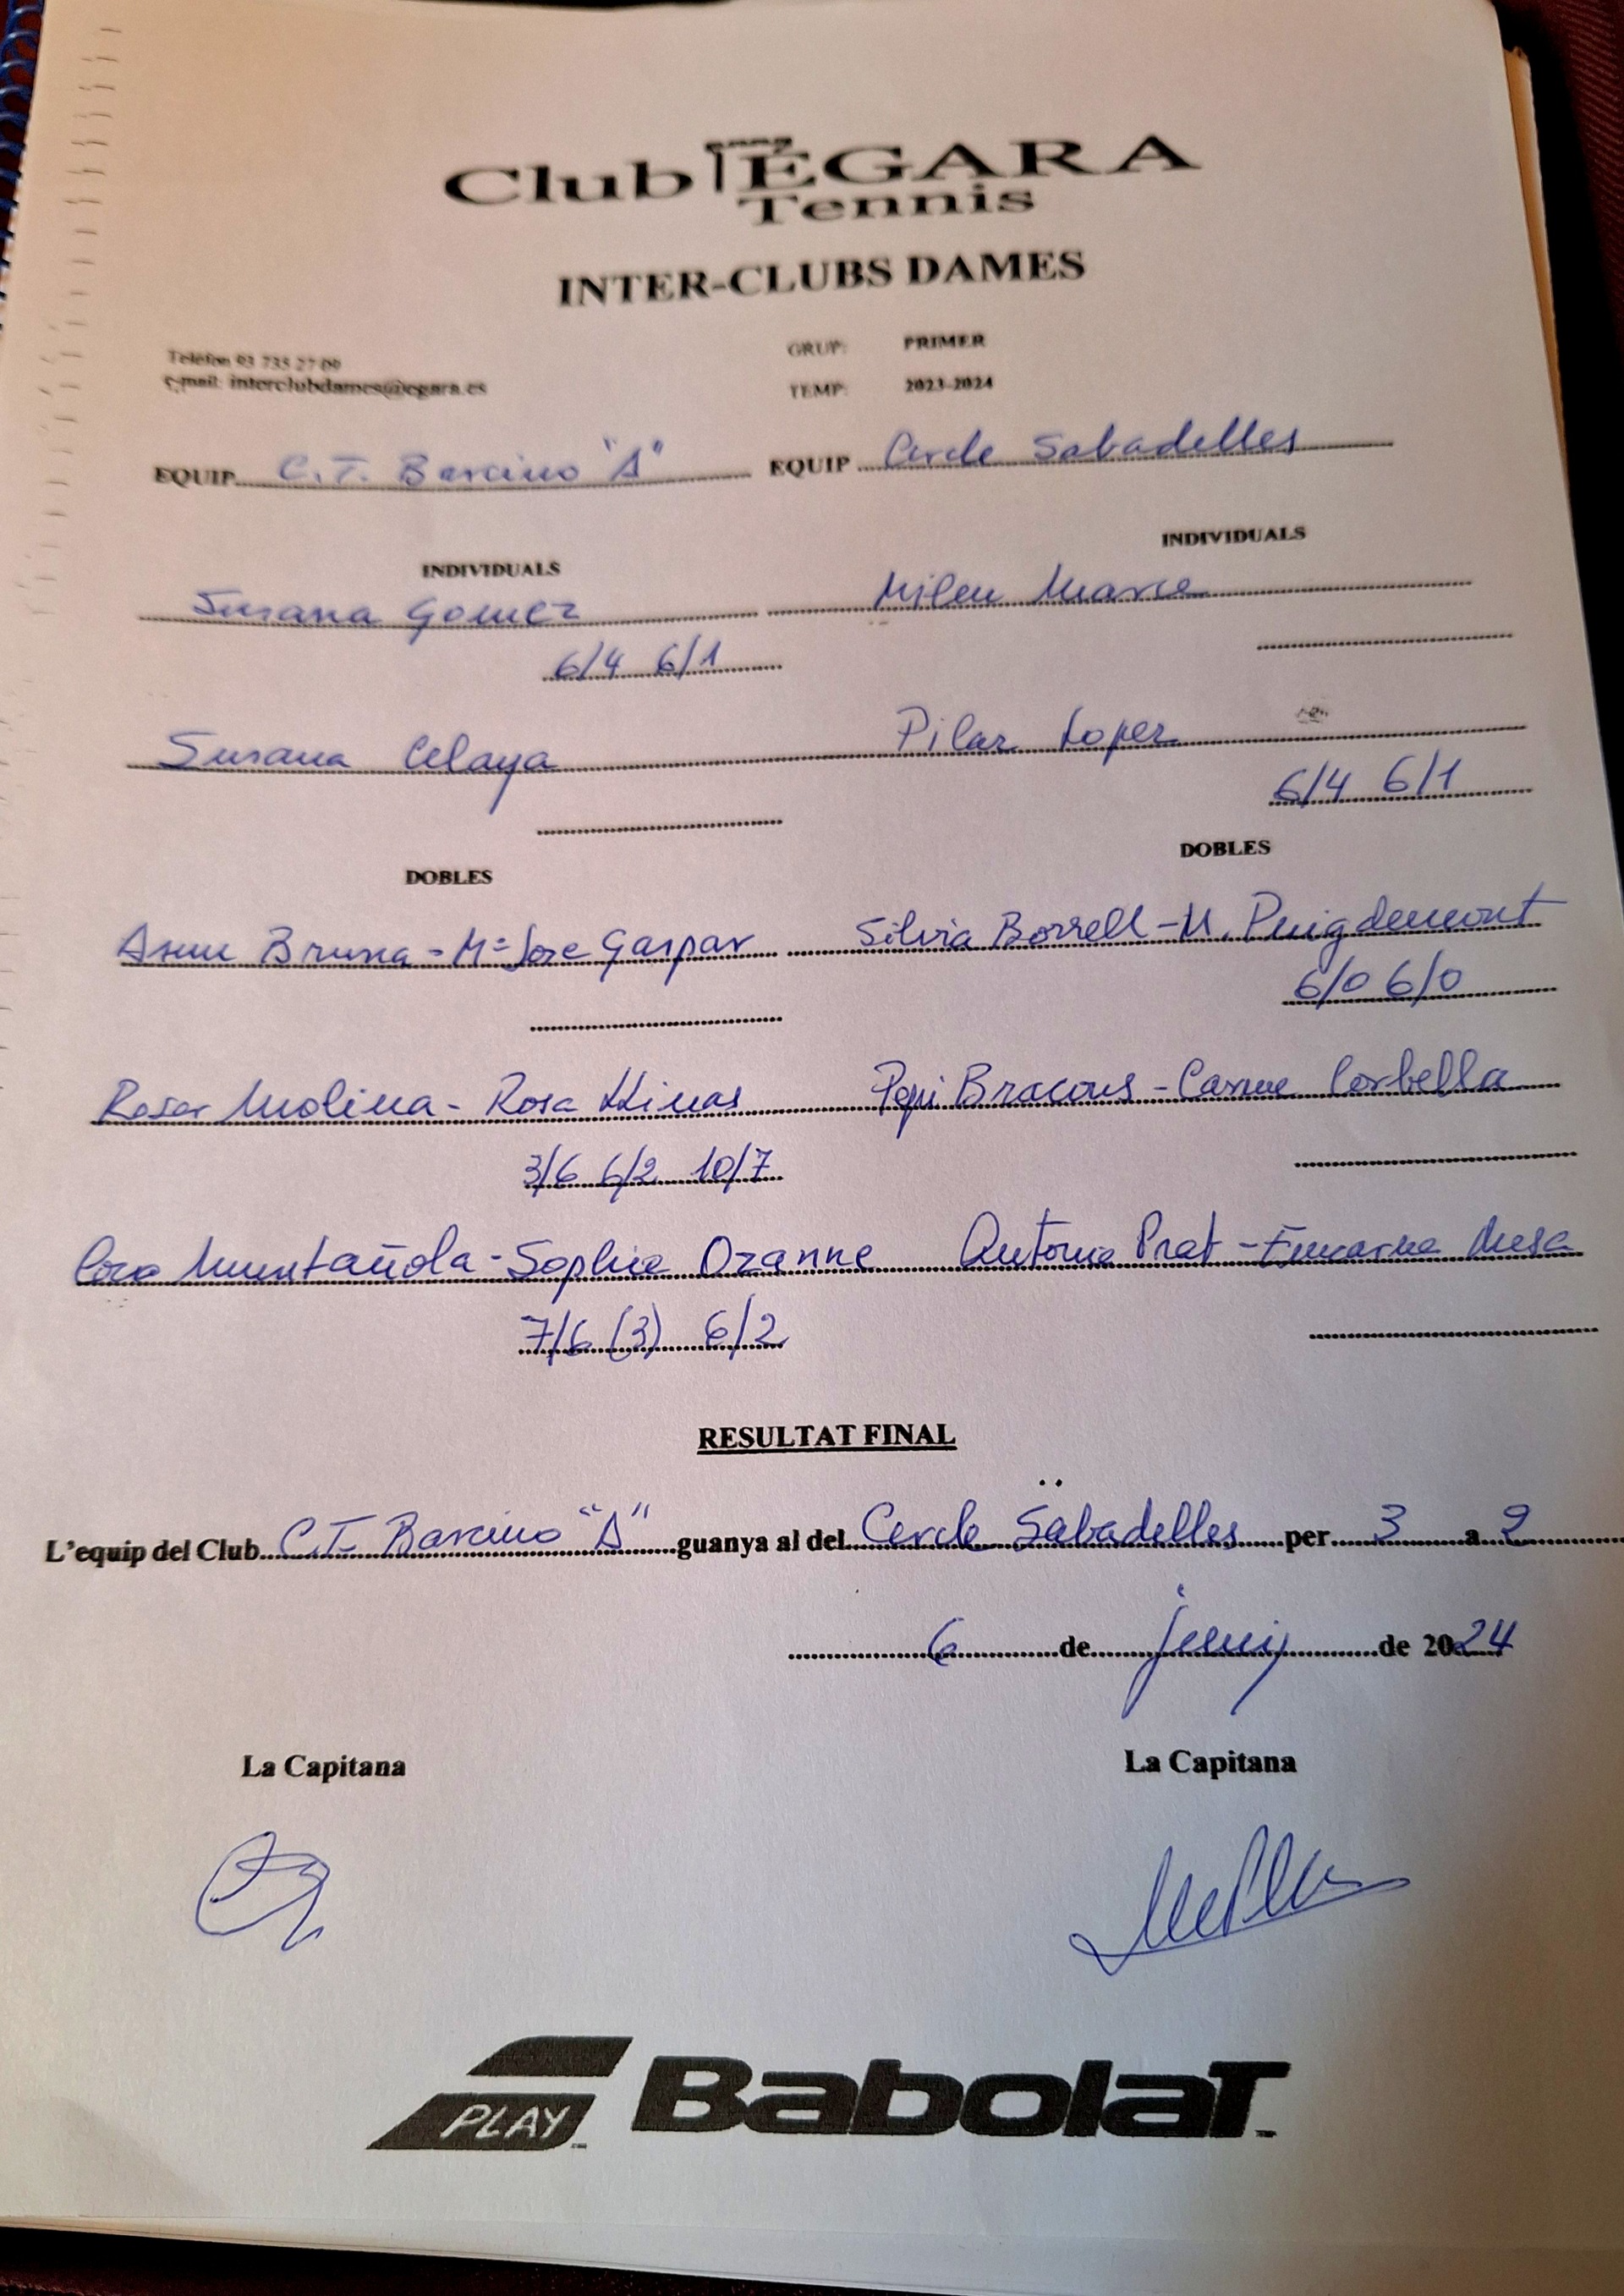 Club EGARA
Tennis
INTER-CLUBS DAMES
Telèfon 93 735 27 09
e-mail: interclubdames@egara.es
GRUP: PRIMER
TEMP: 2023-2024
EQUIP C.T. Barcino "A" EQUIP Cercle Sabadelles
INDIVIDUALS INDIVIDUALS
Susana Gomez Milen
6/4 6/1
Susana Celaya Pilar Lopez
6/4 6/1
DOBLES DOBLES
Asun Bruna - Mª Jose Gaspar Silvia Borrell - M. Puigdemont
6/0 6/0
Roser Molina - Rosa Llinas Pepi Bracons - Carme Corbella
3/6 6/2 10/7
Cora Muntañola - Sophie Ozanne Antonia Prat - Encarna Mesa
7/6 (3) 6/2
RESULTAT FINAL
L'equip del Club C.T. Barcino "A" guanya al del Cercle Sabadelles per 3 a 2
6 de juny de 2024
La Capitana La Capitana
PLAY BabolaT